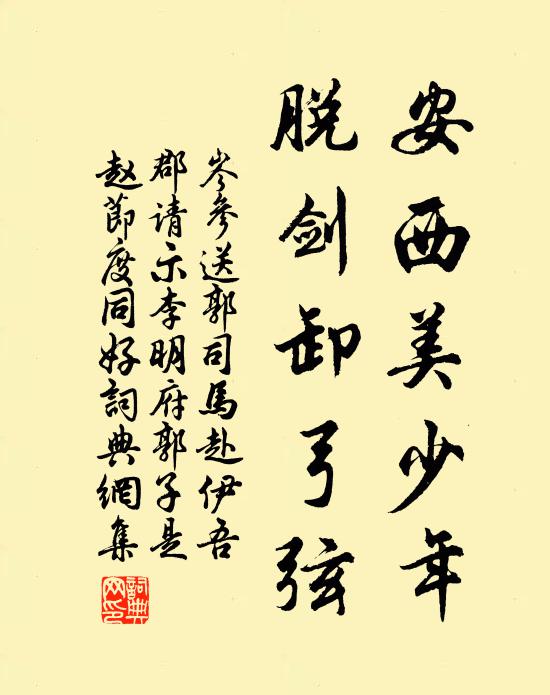 安西美少年
脱剑卸弓弦
岑参送郭司馬赴伊吾
郡请示李明府郭子是
赵節度同好詞典網集
詞典网印